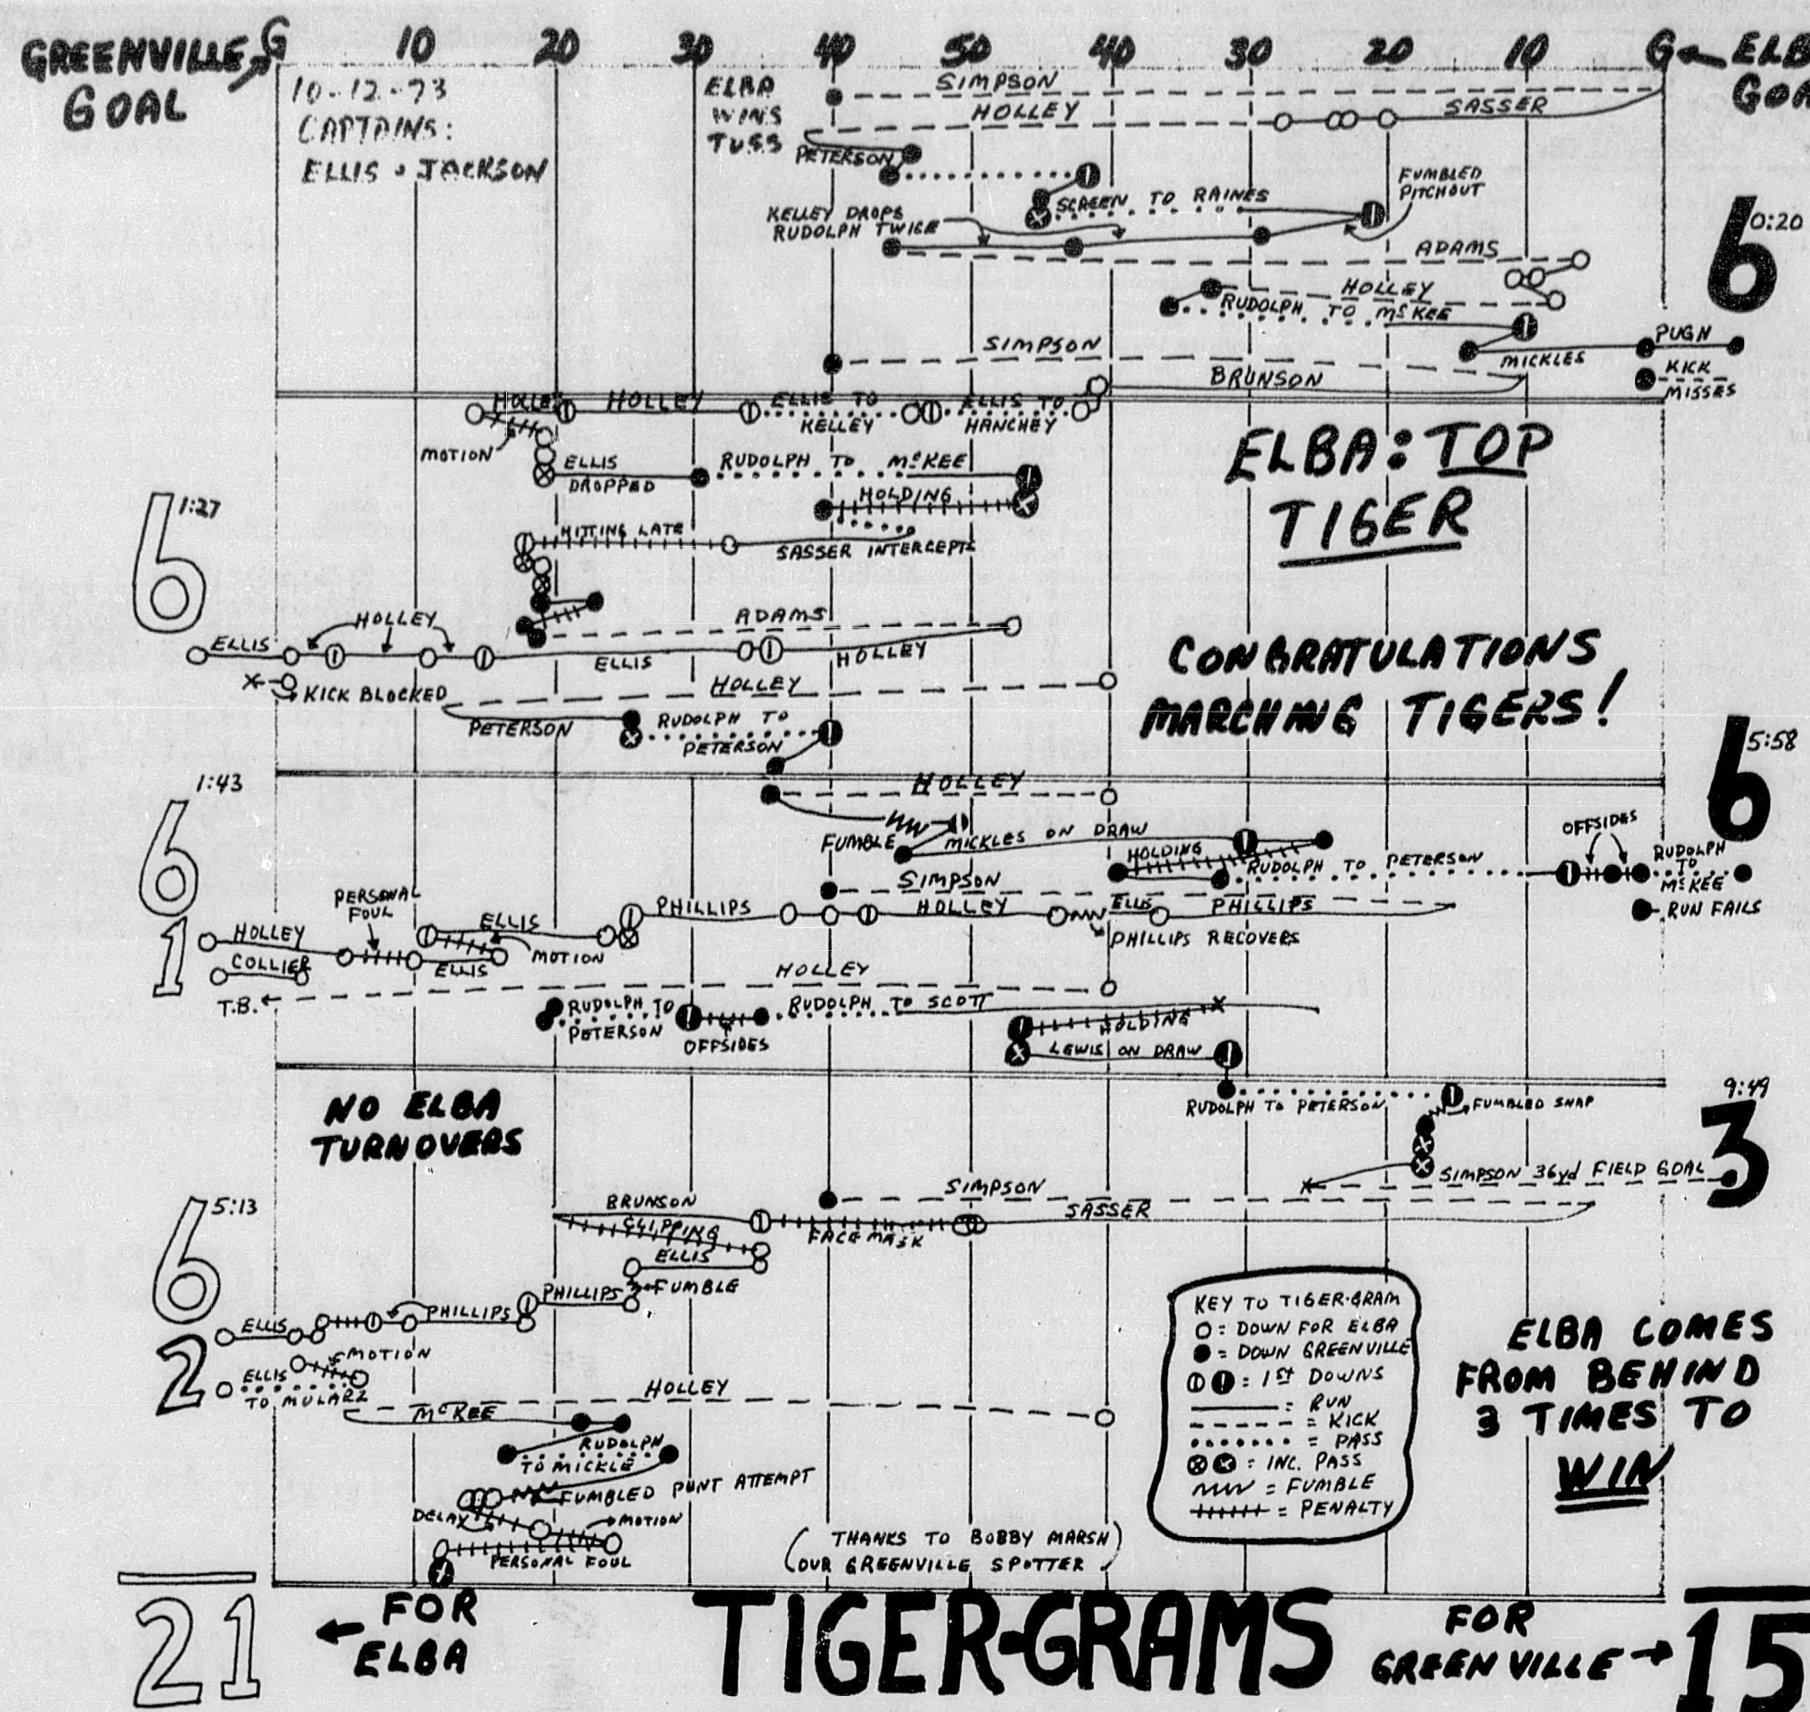 GREENVILLE GOAL
G 10 20 30 40 50 40 30 20 10 G
10-12-73
CAPTAINS:
ELLIS & JACKSON
ELBA
WINS
TUSS
SIMPSON
HOLLEY
SASSER
PETERSON
SCREEN TO RAINES
FUMBLED
PITCHOUT
KELLEY DROPS
RUDOLPH TWICE
ADAMS
6 0:20
HOLLEY
RUDOLPH TO McKEE
PUGH
MICKLES
KICK
MISSES
SIMPSON
BRUNSON
HOLLEY
HOLLEY
ELLIS TO
KELLEY
ELLIS TO
HANCHEY
MOTION
ELLIS
DROPPED
RUDOLPH TO McKEE
HOLDING
ELBA: TOP
TIGER
6 1:27
HITTING LATE
SASSER INTERCEPTS
HOLLEY
ADAMS
ELLIS
ELLIS
HOLLEY
KICK BLOCKED
HOLLEY
PETERSON
RUDOLPH TO
PETERSON
CONGRATULATIONS
MARCHING TIGERS!
6 5:58
6 1:43
HOLLEY
FUMBLE
MICKLES ON DRAW
OFFSIDES
HOLDING
RUDOLPH TO PETERSON
RUDOLPH
TO
McKEE
RUN FAILS
SIMPSON
PERSONAL
FOUL
PHILLIPS
HOLLEY
ELLIS
PHILLIPS
PHILLIPS RECOVERS
1
HOLLEY
ELLIS
MOTION
COLLIER
ELLIS
HOLLEY
T.B.
RUDOLPH TO
PETERSON
OFFSIDES
RUDOLPH TO SCOTT
HOLDING
LEWIS ON DRAW
NO ELBA
TURNOVERS
RUDOLPH TO PETERSON
FUMBLED SNAP
9:49
3
SIMPSON 36yd FIELD GOAL
6 5:13
BRUNSON
SIMPSON
SASSER
CLIPPING
FACE MASK
ELLIS
FUMBLE
PHILLIPS
PHILLIPS
ELLIS
2
MOTION
ELLIS
TO MULARZ
HOLLEY
McKEE
RUDOLPH
TO MICKLE
FUMBLED PUNT ATTEMPT
DELAY
MOTION
PERSONAL FOUL
(THANKS TO BOBBY MARSH
OUR GREENVILLE SPOTTER)
KEY TO TIGER-GRAM
= DOWN FOR ELBA
= DOWN GREENVILLE
: 1st DOWNS
= RUN
= KICK
= PASS
: INC. PASS
= FUMBLE
= PENALTY
ELBA COMES
FROM BEHIND
3 TIMES TO
WIN
21
← FOR
ELBA
TIGER-GRAMS
FOR
GREENVILLE →
15